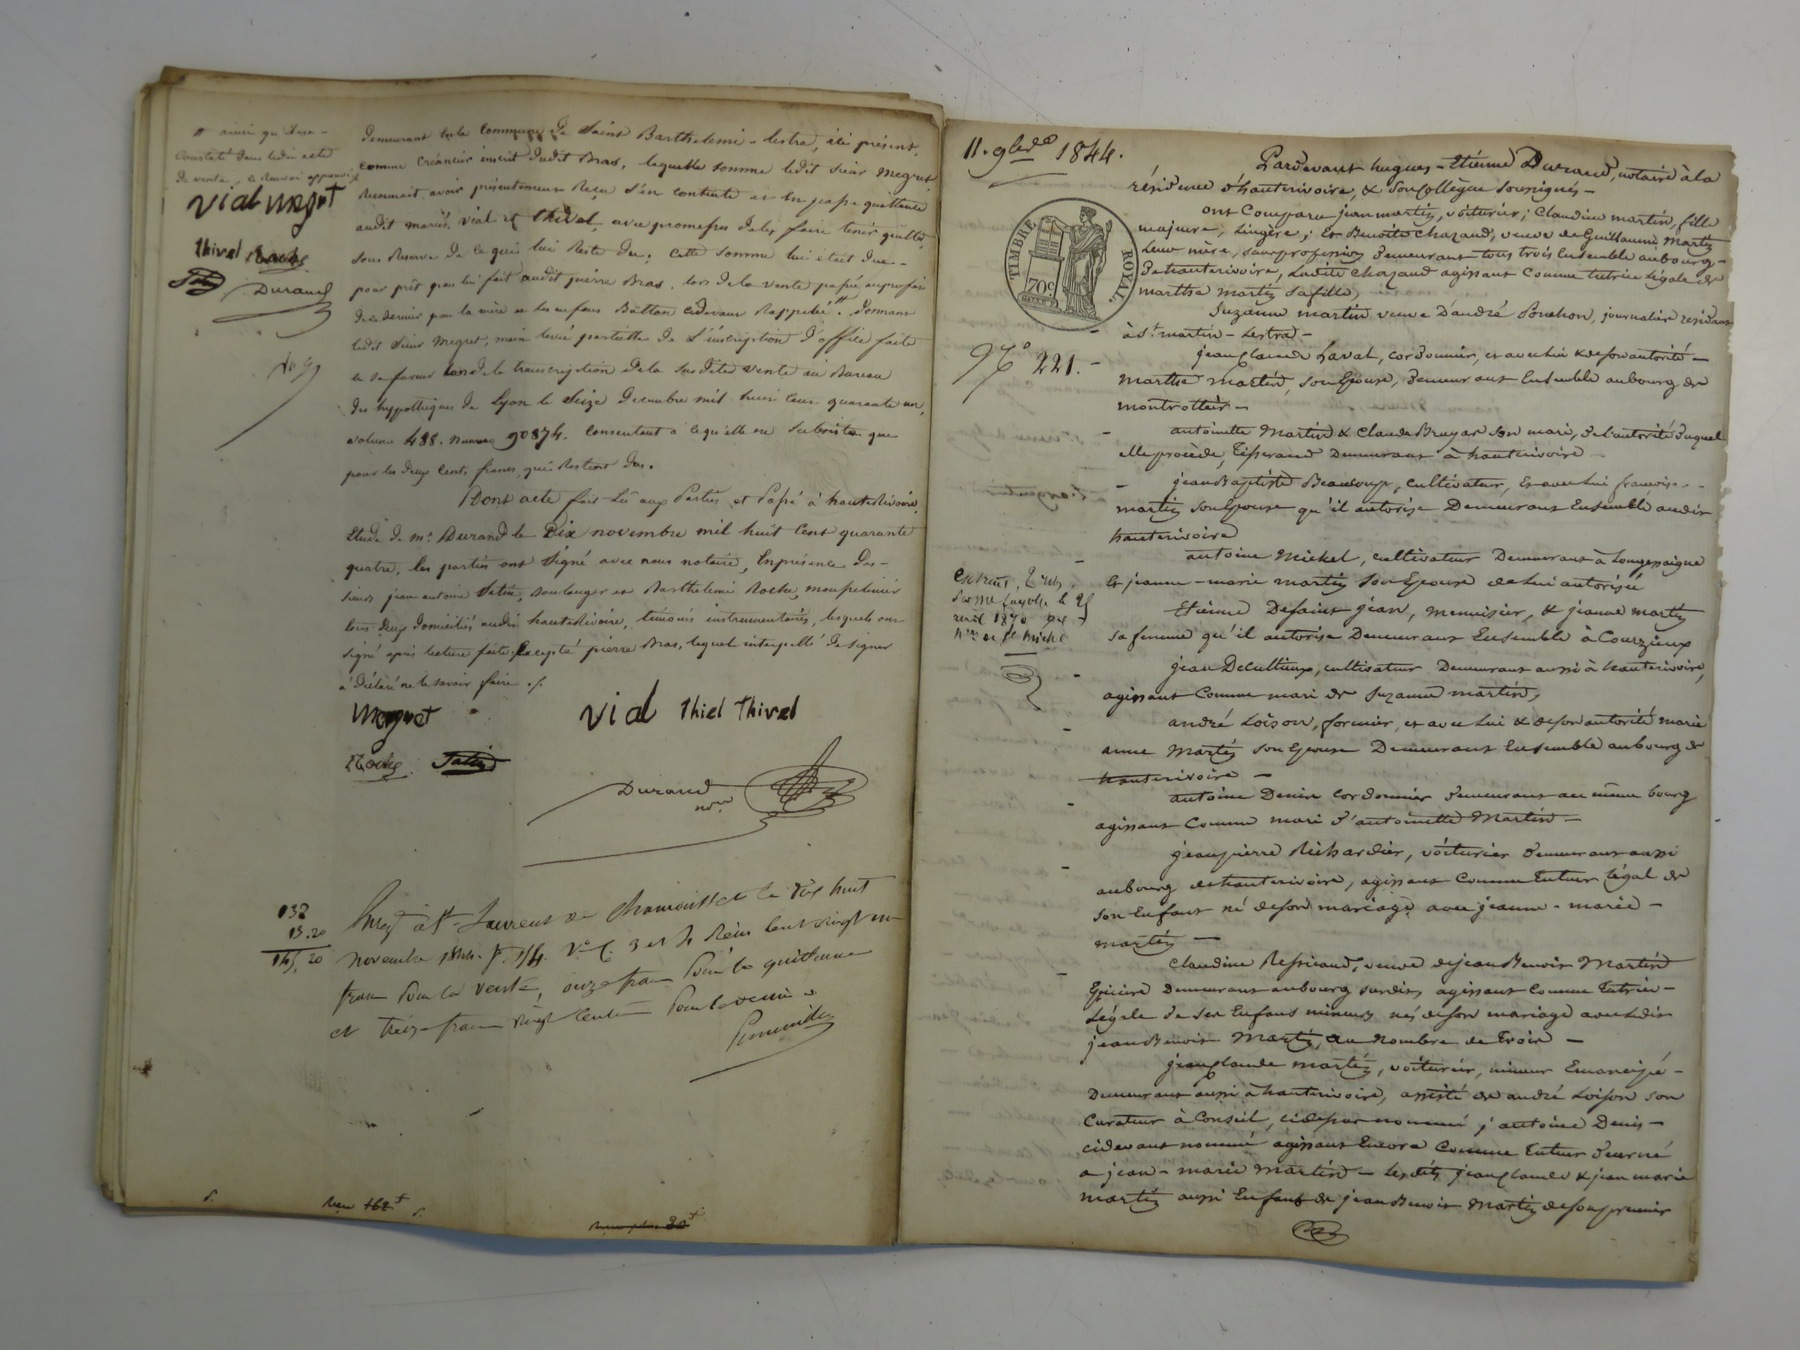 # ainsi qu'il est
Constaté dans ledit acte
de vente, le Renvoi approuvé
Vial Megret
Thivel Roche
Satin
Durand
demeurant en la Commune de Saint Barthelemi-lestra, ici présent,
comme Créancier inscrit dudit Bras, laquelle somme ledit sieur Megret
Reconnait avoir présentement Reçu s'en contente et en passe quittance
audit mariés Vial et Thivel, avec promesses de les faire tenir quittes
sous Reserve de ce qui lui Reste du; Cette somme lui était due
pour prêt par lui fait audit pierre Bras, lors de la vente passée à son profit
de ce dernier par la mère et les enfans Batton cidevant Rappelée #. Donnant
ledit sieur Megret, main levée partielle de l'inscription d'office faite
en sa faveur lors de la transcription de la susdite vente au Bureau
des hypothèques de Lyon le Seize Decembre mil huit cent quarante un,
volume 488. numero 90874. Consentant à ce qu'elle ne Subsiste que
pour les deux Cents francs, qui Restent dus.
Dont acte fait Lu aux Parties et Passé à hauterivoire,
Etude de Me. Durand le Dix novembre mil huit Cent quarante
quatre, les parties ont Signé avec nous notaire, En présence des
sieurs jean antoine Satin, Boulanger et Barthelemi Roche, marechal
tous deux domiciliés audit hauterivoire, témoins instrumentaires, lesquels ont
signé après lecture faite, Excepté pierre Bras, lequel interpellé de signer
a déclaré ne le savoir faire ./.
Megret Vial Thiel Thivel
Roche Satin
Durand
nore
132
13.20
145,20
Enregé à St Laurent de Chamousset le dix huit
novembre 1844. fo 114. Vo C. 3 et 4 Reçu Cent vingt un
francs Pour la vente, onze francs Pour la quittance
et treize francs vingt Centimes Pour le decime
Reçu 162 f
Reçu plus 30 f
11. 9bre 1844.
TIMBRE ROYAL
70c
No 221.
Extrait, 2 rôles
Pardevant hugues-Etienne Durand, notaire à la
résidence d'hauterivoire, & son Collègue soussignés-
ont Comparu jean martin, voiturier; Claudine martin, fille
majeure, Lingère; Et Benoite Chazaud, veuve de Guillaume Martin
leur mère, sans profession demeurant tous trois Ensemble au bourg
De hauterivoire, Ladite Chazaud agissant Comme tutrice légale de
marthe martin sa fille,
Suzanne martin veuve D'andré Ponchon, journalière résidant
à St. martin-Lestra-
jean Claude Laval, Cordonnier, et avec lui & de son autorité-
marthe martin, son Epouse, Demeurant Ensemble au bourg de
montrottier-
antoinette Martin & Claude Bruyas son mari, De l'autorité duquel
elle procède, Tisserand Demeurant à hauterivoire
jean Baptiste Beauloup, Cultivateur, Et avec lui françoise
martin son Epouse qu'il autorise Demeurant Ensemble audit
hauterivoire
antoine Mickel, Cultivateur Demeurant à Longessaigne
Et jeanne-marie martin son Epouse de lui autorisée
Etienne Defaint jean, Menuisier, & jeanne martin
sa femme qu'il autorise Demeurant Ensemble à Courzieux
jean Decultieux, cultivateur Demeurant aussi à hauterivoire,
agissant Comme mari de Suzanne martin,
andré Loison, fermier, et avec lui & de son autorité marie
anne Martin son Epouse Demeurant Ensemble au bourg de
hauterivoire-
antoine Denis Cordonnier demeurant au même bourg
agissant Comme mari d'antoinette Martin-
jean pierre Richardier, voiturier demeurant aussi
au bourg de hauterivoire, agissant Comme Tuteur légal de
son Enfant né de son mariage avec jeanne-marie-
martin-
Claudine Ressicaud, veuve de jean Benoit Martin
Epicière Demeurant au bourg susdit, agissant Comme Tutrice-
Légale de ses Enfans mineurs nés de son mariage avec ledit
jean Benoit Martin, au Nombre de Trois-
jean Claude Martin, voiturier, mineur Emancipé-
Demeurant aussi à hauterivoire, assisté de andré Loison son
Curateur à Conseil, cidessus nommé; antoine Denis-
cidevant nommé agissant Encore Comme Tuteur Decerné
a jean-marie Martin- Lesdits jean Claude & jean marie
Martin aussi Enfans de jean Benoit Martin de son premier